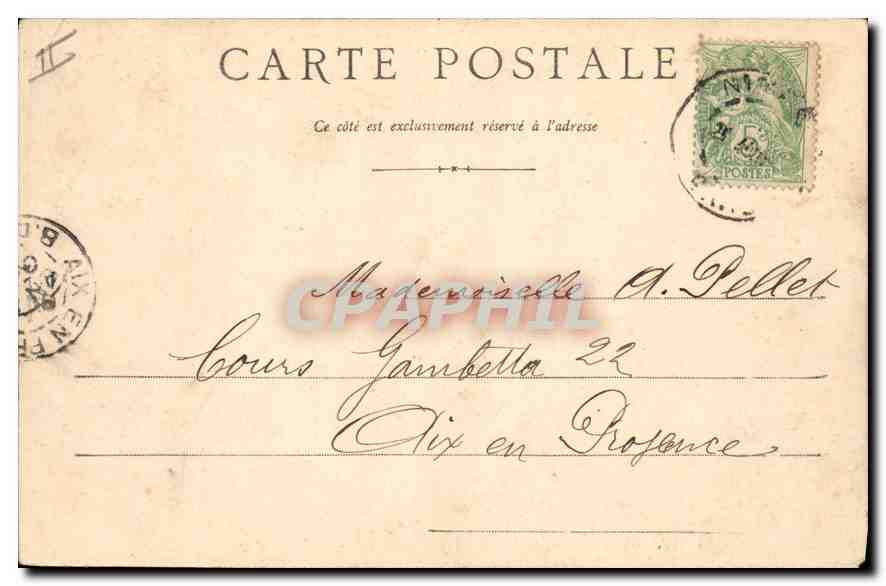 CARTE POSTALE
Ce côté est exclusivement réservé à l'adresse
5
POSTES
AIX EN PR
B. D
CPAPHIL
Mademoiselle A. Pellet
Cours Gambetta 22
Aix en Provence